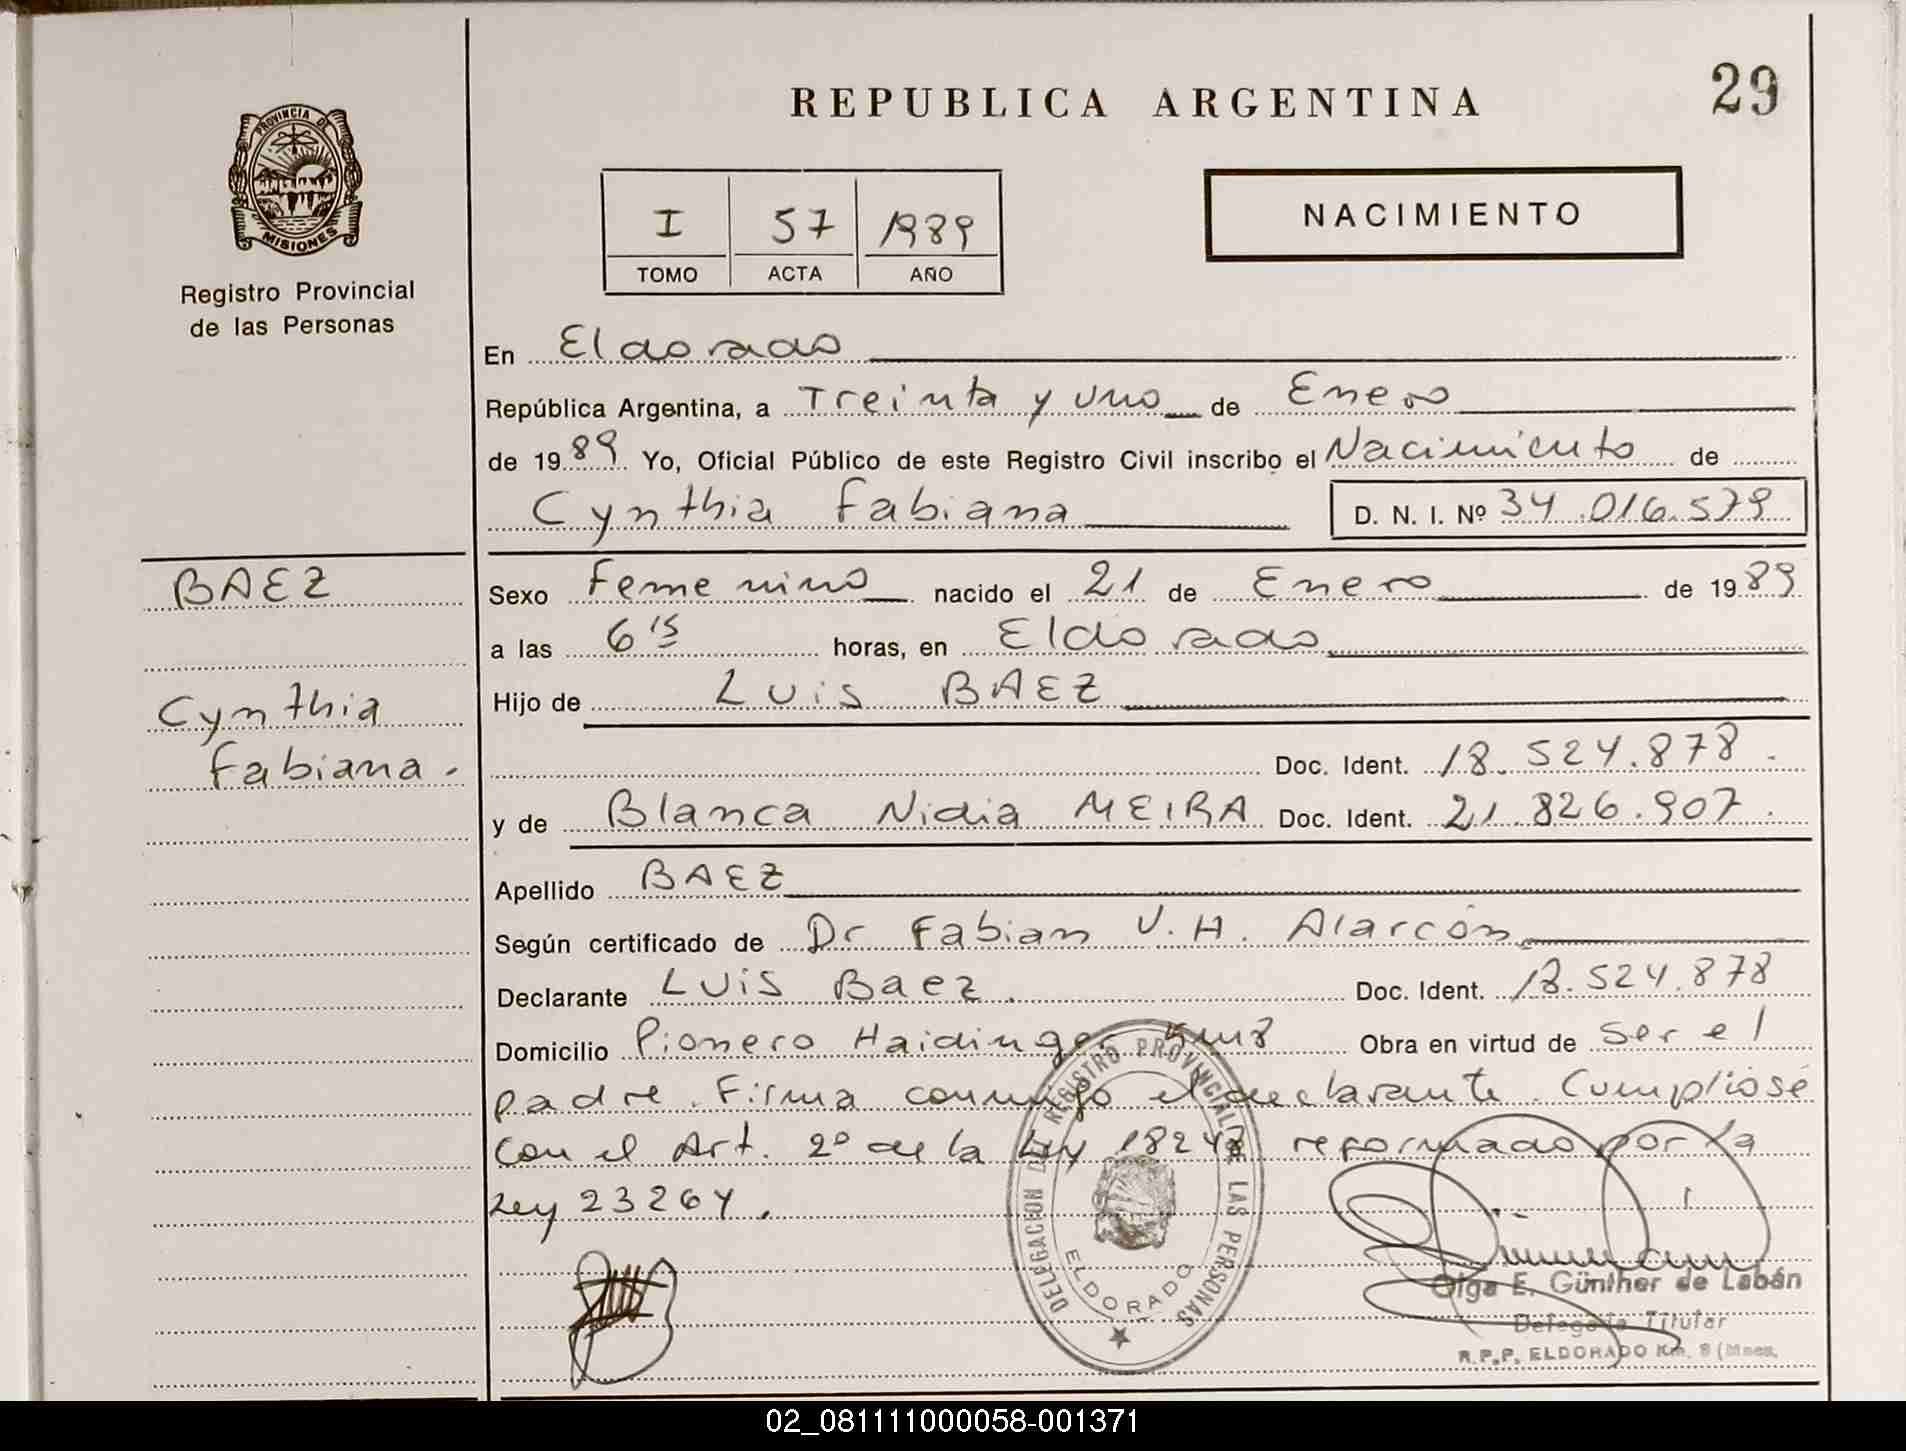 REPUBLICA ARGENTINA
29
PROVINCIA DE
MISIONES
Registro Provincial
de las Personas
I 57 1989
TOMO ACTA AÑO
NACIMIENTO
En Eldorado
República Argentina, a Treinta y uno de Enero
de 1989 Yo, Oficial Público de este Registro Civil inscribo el Nacimiento de
Cynthia Fabiana D. N. I. Nº 34.016.579
BAEZ
Cynthia
Fabiana.
Sexo Femenino nacido el 21 de Enero de 1989
a las 6 15 horas, en Eldorado
Hijo de Luis BAEZ
Doc. Ident. 18.524.878.
y de Blanca Nidia MEIRA Doc. Ident. 21.826.907.
Apellido BAEZ
Según certificado de Dr Fabian V. H. Alarcón
Declarante Luis Baez Doc. Ident. 18.524.878
Domicilio Pionero Haidinger km 8 Obra en virtud de ser el
padre. Firma conmigo el declarante. Cumpliose
con el Art. 2º de la Ley 18248 reformado por la
Ley 23264.
DELEGACION DE REGISTRO PROVINCIAL DE LAS PERSONAS
ELDORADO
Olga E. Günther de Labán
Delegada Titular
R.P.P. ELDORADO Km. 8 (Mnes.
02_081111000058-001371